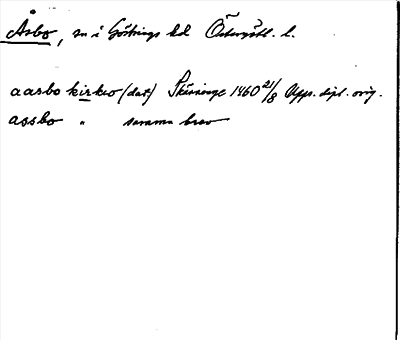 Åsbo, sn i Göstrings hd Östergötl. l.
aasbo kirkio (dat) Skänninge 1460 21/8 Upps. dipl. orig.
assbo " samma brev